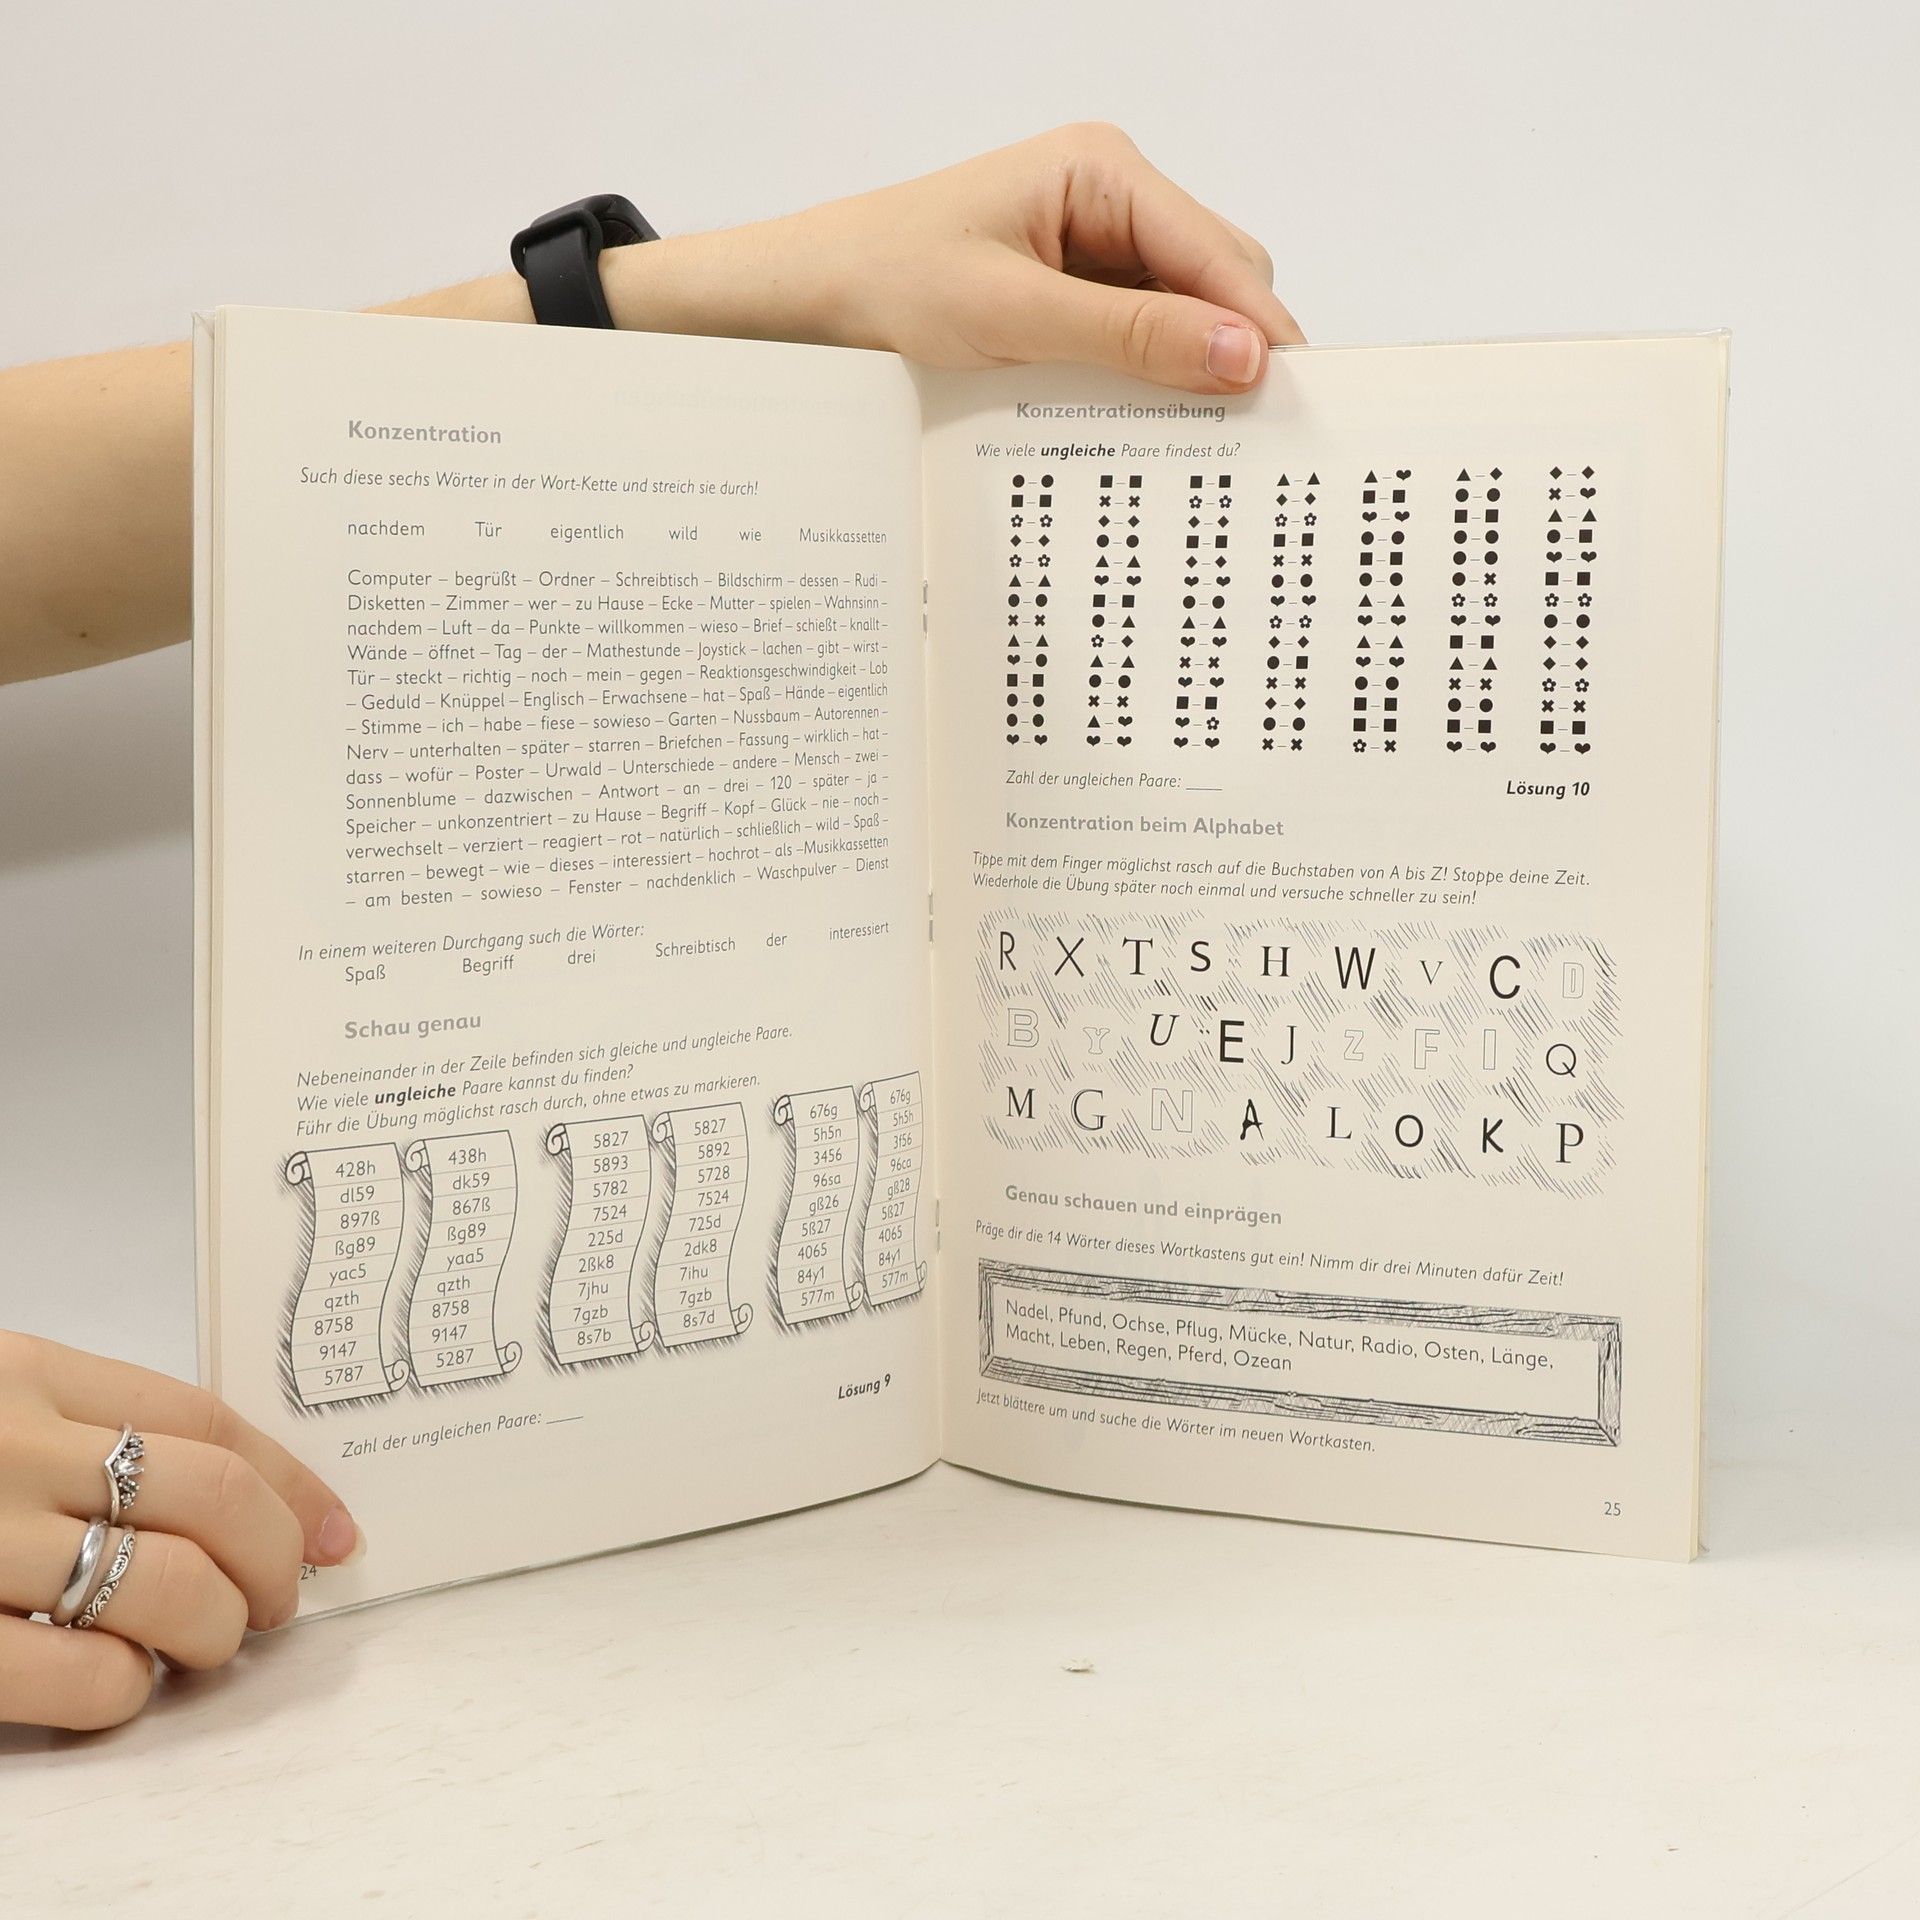 Konzentration
Such diese sechs Wörter in der Wort-Kette und streich sie durch!
nachdem Tür eigentlich wild wie Musikkassetten
Computer – begrüßt – Ordner – Schreibtisch – Bildschirm – dessen – Rudi –
Disketten – Zimmer – wer – zu Hause – Ecke – Mutter – spielen – Wahnsinn –
nachdem – Luft – da – Punkte – willkommen – wieso – Brief – schießt – knallt –
Wände – öffnet – Tag – der – Mathestunde – Joystick – lachen – gibt – wirst –
Tür – steckt – richtig – noch – mein – gegen – Reaktionsgeschwindigkeit – Lob
– Geduld – Knüppel – Englisch – Erwachsene – hat – Spaß – Hände – eigentlich
– Stimme – ich – habe – fiese – sowieso – Garten – Nussbaum – Autorennen –
Nerv – unterhalten – später – starren – Briefchen – Fassung – wirklich – hat –
dass – wofür – Poster – Urwald – Unterschiede – andere – Mensch – zwei –
Sonnenblume – dazwischen – Antwort – an – drei – 120 – später – ja –
Speicher – unkonzentriert – zu Hause – Begriff – Kopf – Glück – nie – noch –
verwechselt – verziert – reagiert – rot – natürlich – schließlich – wild – Spaß –
starren – bewegt – wie – dieses – interessiert – hochrot – als –Musikkassetten
– am besten – sowieso – Fenster – nachdenklich – Waschpulver – Dienst
In einem weiteren Durchgang such die Wörter:
Spaß Begriff drei Schreibtisch der interessiert
Schau genau
Nebeneinander in der Zeile befinden sich gleiche und ungleiche Paare.
Wie viele ungleiche Paare kannst du finden?
Führ die Übung möglichst rasch durch, ohne etwas zu markieren.
428h 438h
dl59 dk59
897ß 867ß
ßg89 ßg89
yac5 yaa5
qzth qzth
8758 8758
9147 9147
5787 5287
5827 5827
5893 5892
5782 5728
7524 7524
225d 725d
2ßk8 2dk8
7jhu 7ihu
7gzb 7gzb
8s7b 8s7d
676g 676g
5h5n 5h5h
3456 3f56
96sa 96ca
gß26 gß28
5ß27 5ß27
4065 4065
84y1 84y1
577m 577m
Lösung 9
Zahl der ungleichen Paare: ____
24
Konzentrationsübung
Wie viele ungleiche Paare findest du?
Zahl der ungleichen Paare: ____ Lösung 10
Konzentration beim Alphabet
Tippe mit dem Finger möglichst rasch auf die Buchstaben von A bis Z! Stoppe deine Zeit.
Wiederhole die Übung später noch einmal und versuche schneller zu sein!
R X T S H W V C D
B Y U E J Z F I Q
M G N A L O K P
Genau schauen und einprägen
Präge dir die 14 Wörter dieses Wortkastens gut ein! Nimm dir drei Minuten dafür Zeit!
Nadel, Pfund, Ochse, Pflug, Mücke, Natur, Radio, Osten, Länge,
Macht, Leben, Regen, Pferd, Ozean
Jetzt blättere um und suche die Wörter im neuen Wortkasten.
25